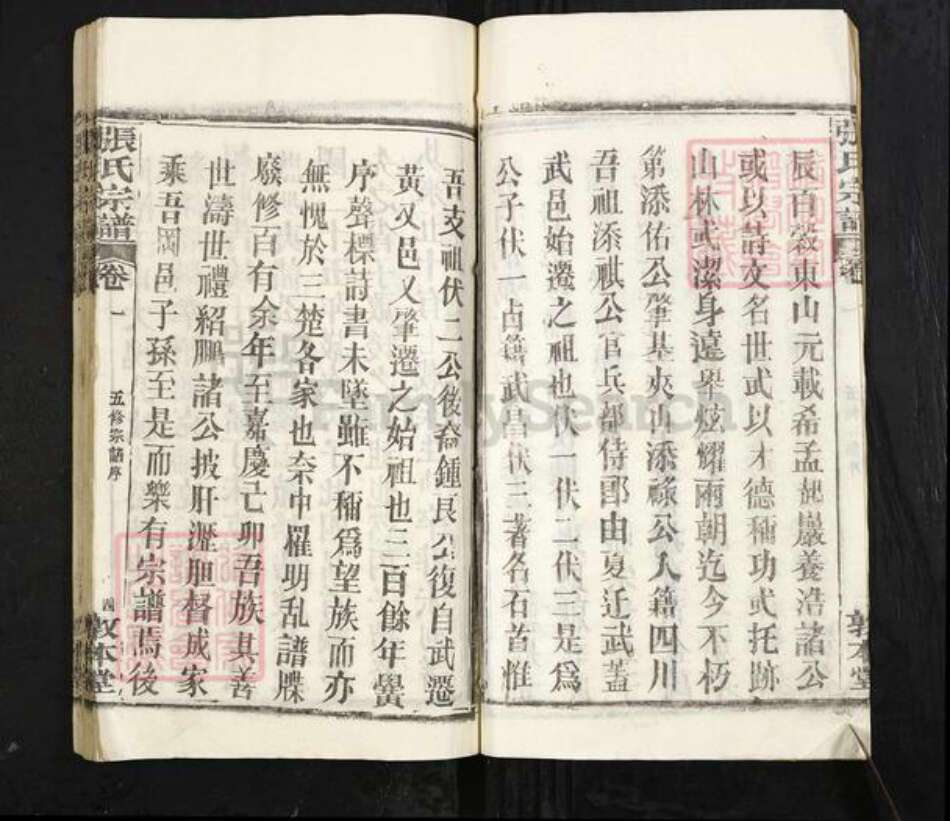 張氏宗譜
敦本堂
辰百谷東山元載希孟起巖養浩諸公
或以詩文名世或以才德稱功或托跡
山林或潔身遠舉炫耀兩朝迄今不朽
第添佑公肇基夾山添祿公人籍四川
吾祖添祺公官兵部侍郎由夏迁武蓋
武邑始遷之祖也伏一伏二伏三是為
公子伏一占籍武昌伏三著名石首惟
吾支祖伏二公後裔鍾良公復自武遷
黃又邑又肇遷之始祖也三百餘年黌
序聲標詩書未墜雖不稱為望族而亦
無愧於三楚各家也奈中罹明乱譜牒
廢修百有余年至嘉慶己卯吾族其善
世濤世禮紹鵬諸公披肝瀝胆督成家
乘吾岡邑子孫至是而樂有宗譜焉後
張氏宗譜
卷一
五修宗譜序
四
敦本堂
FamilySearch